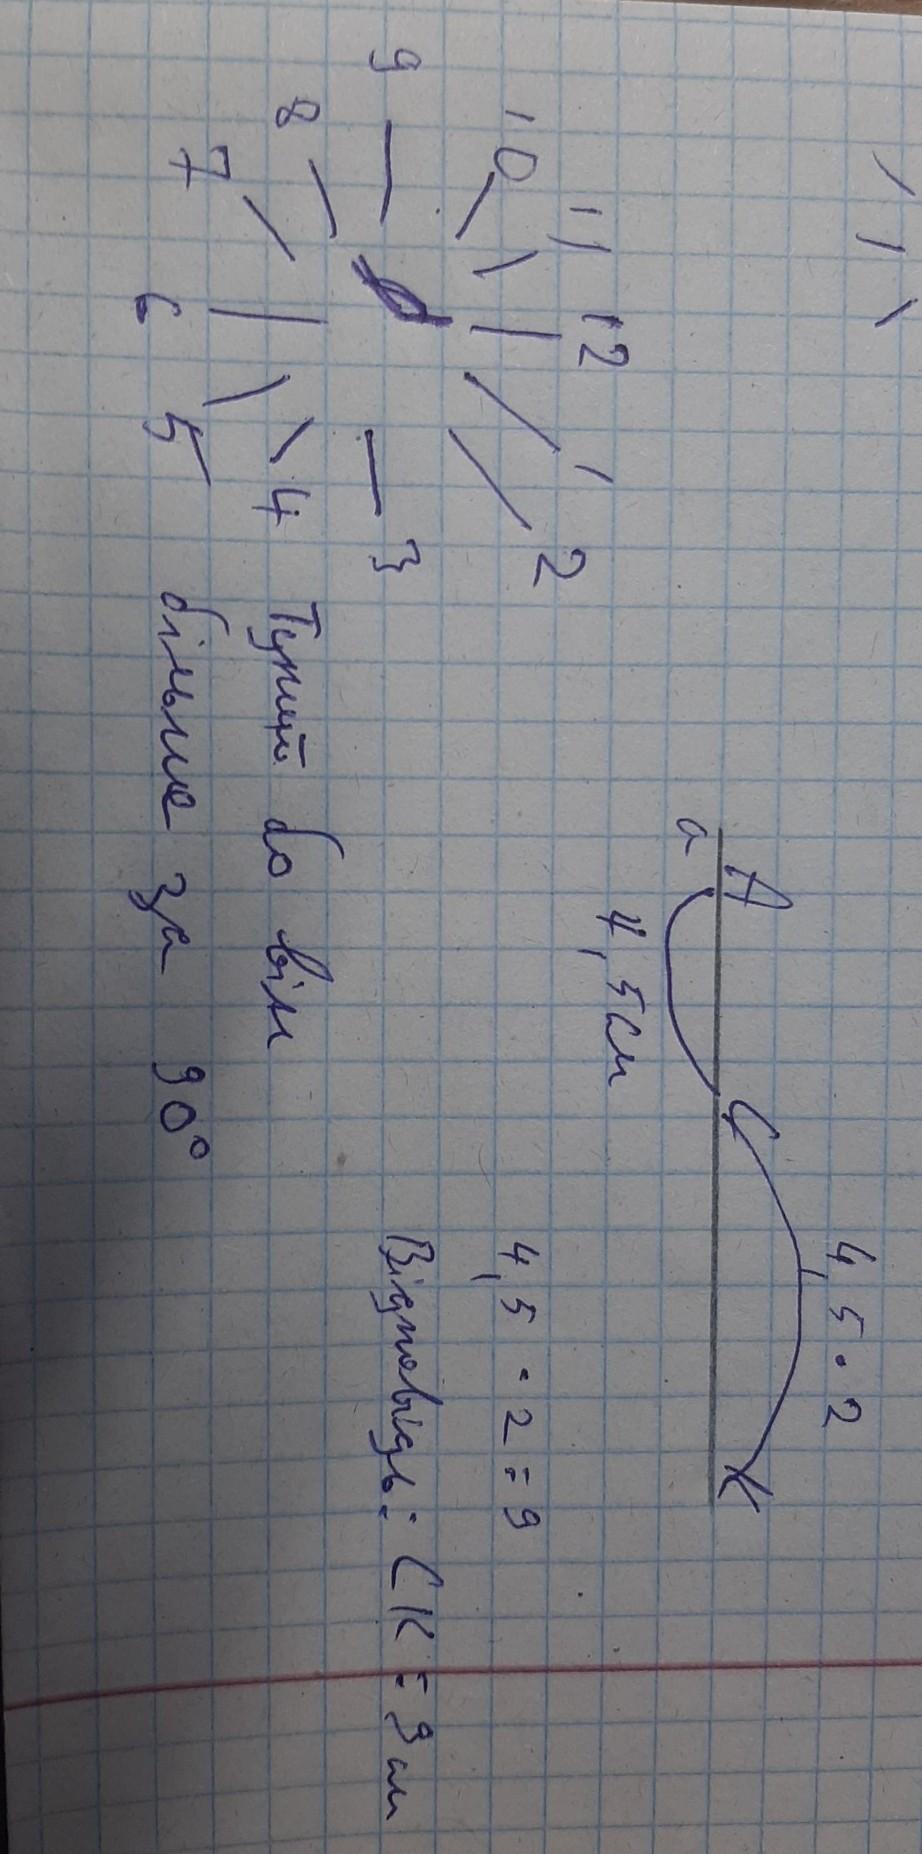 4,5 · 2
A C K
a
4,5см
12
11 1
10 2
9 3
8 4
7 5
6
4,5 · 2 = 9
Відповідь: СК = 9 см
Тупий бо він
більше за 90°